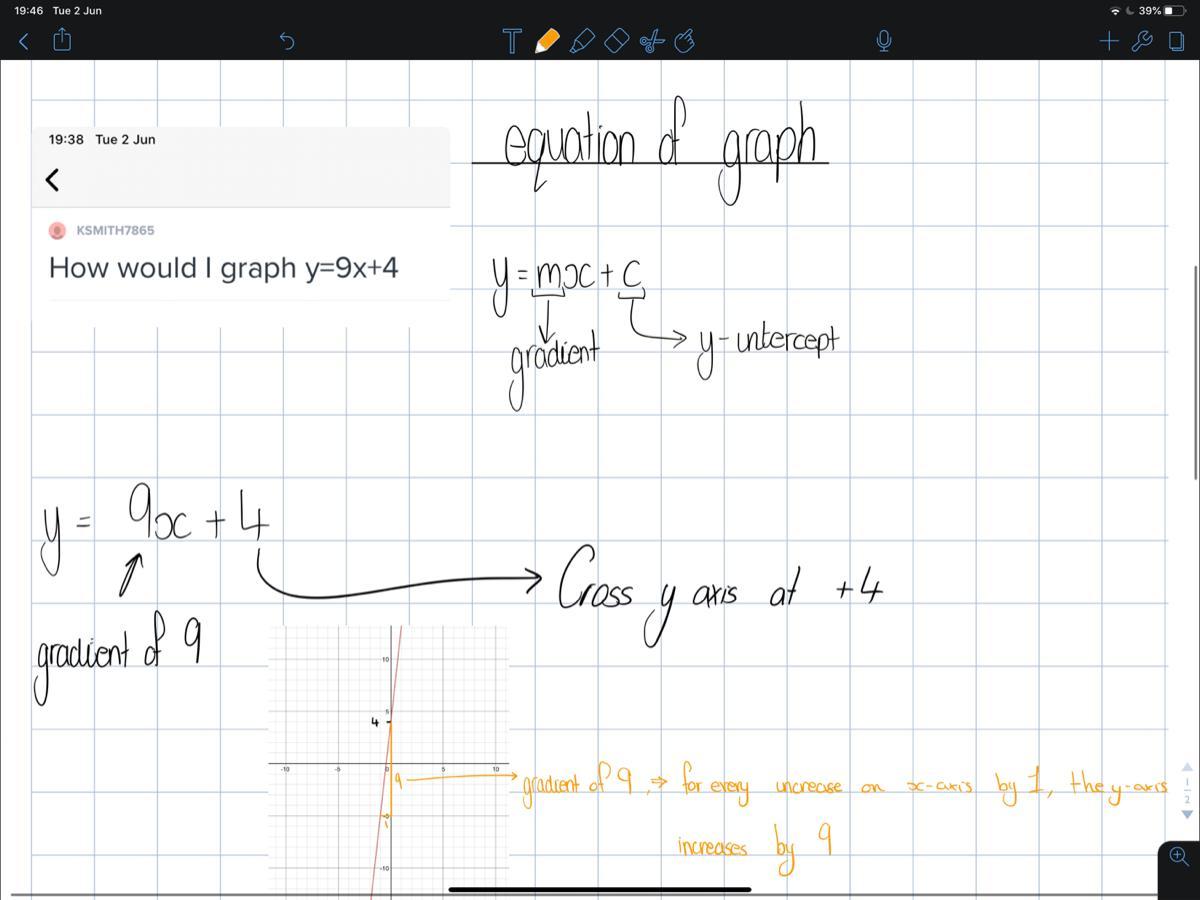 19:46 Tue 2 Jun
39%
T
19:38 Tue 2 Jun
KSMITH7865
How would I graph y=9x+4
equation of graph
y=mx+c
gradient
y-intercept
y= 9x+4
gradient of 9
Cross y axis at +4
10
5
4
-10 -5 0 5 10
9
-10
gradient of 9, ⇒ for every increase on x-axis by 1, the y-axis
increases by 9
1
2